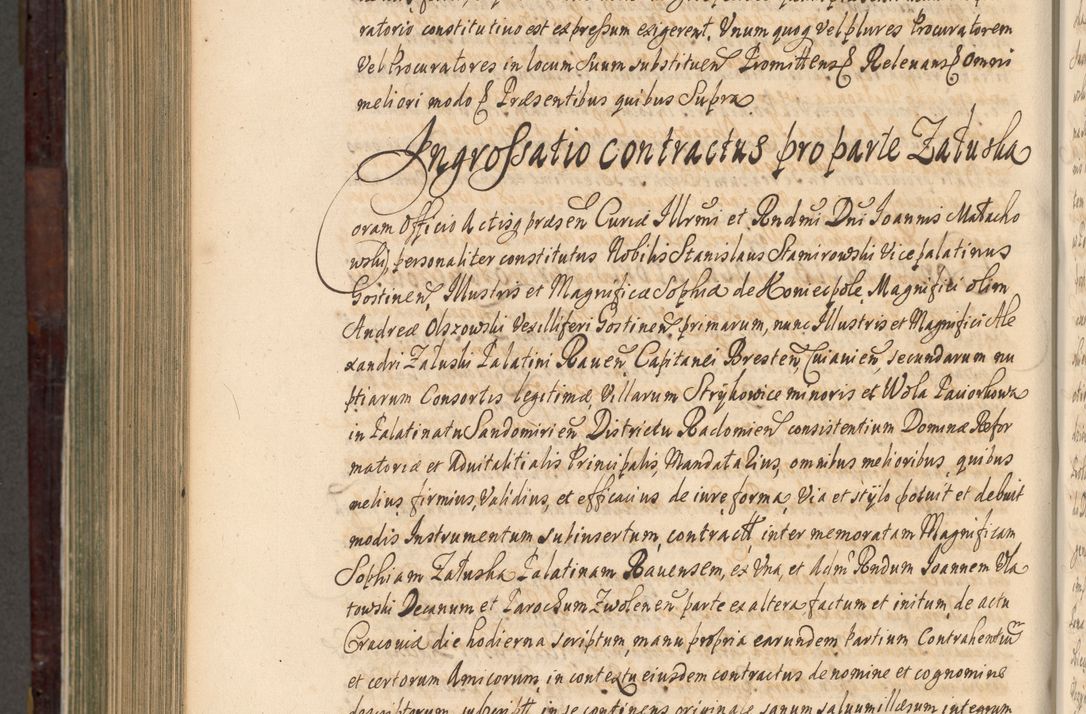 ratorio constitutino est expreſsum exigerent. Vnum quoq Vel plures Procuratorem
Vel Procuratores in locum Suum substituen Promittens Releuans Omni
meliori modo Præsentibus quibus Supra
Ingroſsatio contractus pro parte Załuska
oram Officio Actisq præsen Curiæ Illrmi et Rndmi Dni Joannis Małacho
wski, personaliter constitutus Nobilis Stanislaus Stamirowski Vice palatinus
Gostinen, Illustris et Magnificæ Sophiæ de Koniecpole, Magnifici olim
Andreæ Olszowski Vexilliferi Gostinen primarum, nunc Illustris et Magnifici Ale
xandri Załuski Palatini Rauen, Capitanei Bresten Cuiauien, secundarum nu
ptiarum Consortis legitimæ, Villarum Strykowice minoris et Wola Pauiorkowa
in Palatinatu Sandomirien Districtu Radomien consistentium Dominæ Refor
matoriæ et Aduitalitialis Principalis, Mandatarius, omnibus melioribus, quibus
melius, firmius, Validius, et efficacius de iure forma, Via et stylo potuit et debuit
modis Instrumentum subinsertum, contractt inter memoratam Magnificam
Sophiam Załuska Palatinam Rauensem, ex Vna, et Adm Rndum Joannem Vla
towski Decanum et Parochum Zwolenen parte ex altera factum et initum, de actu
Cracouiæ die hodierna scriptum, manu propria earundem Partium Contrahentiu
et certorum Amicorum, in contextu eiusdem contractus de nomine et cognomine
descriptorum, subscriptt, in se continens originale sanum saluum illæsum integrum